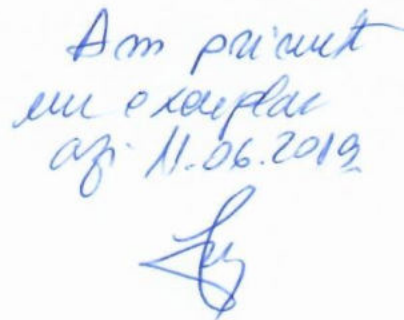 Am primit
un exemplar
azi 11.06.2019